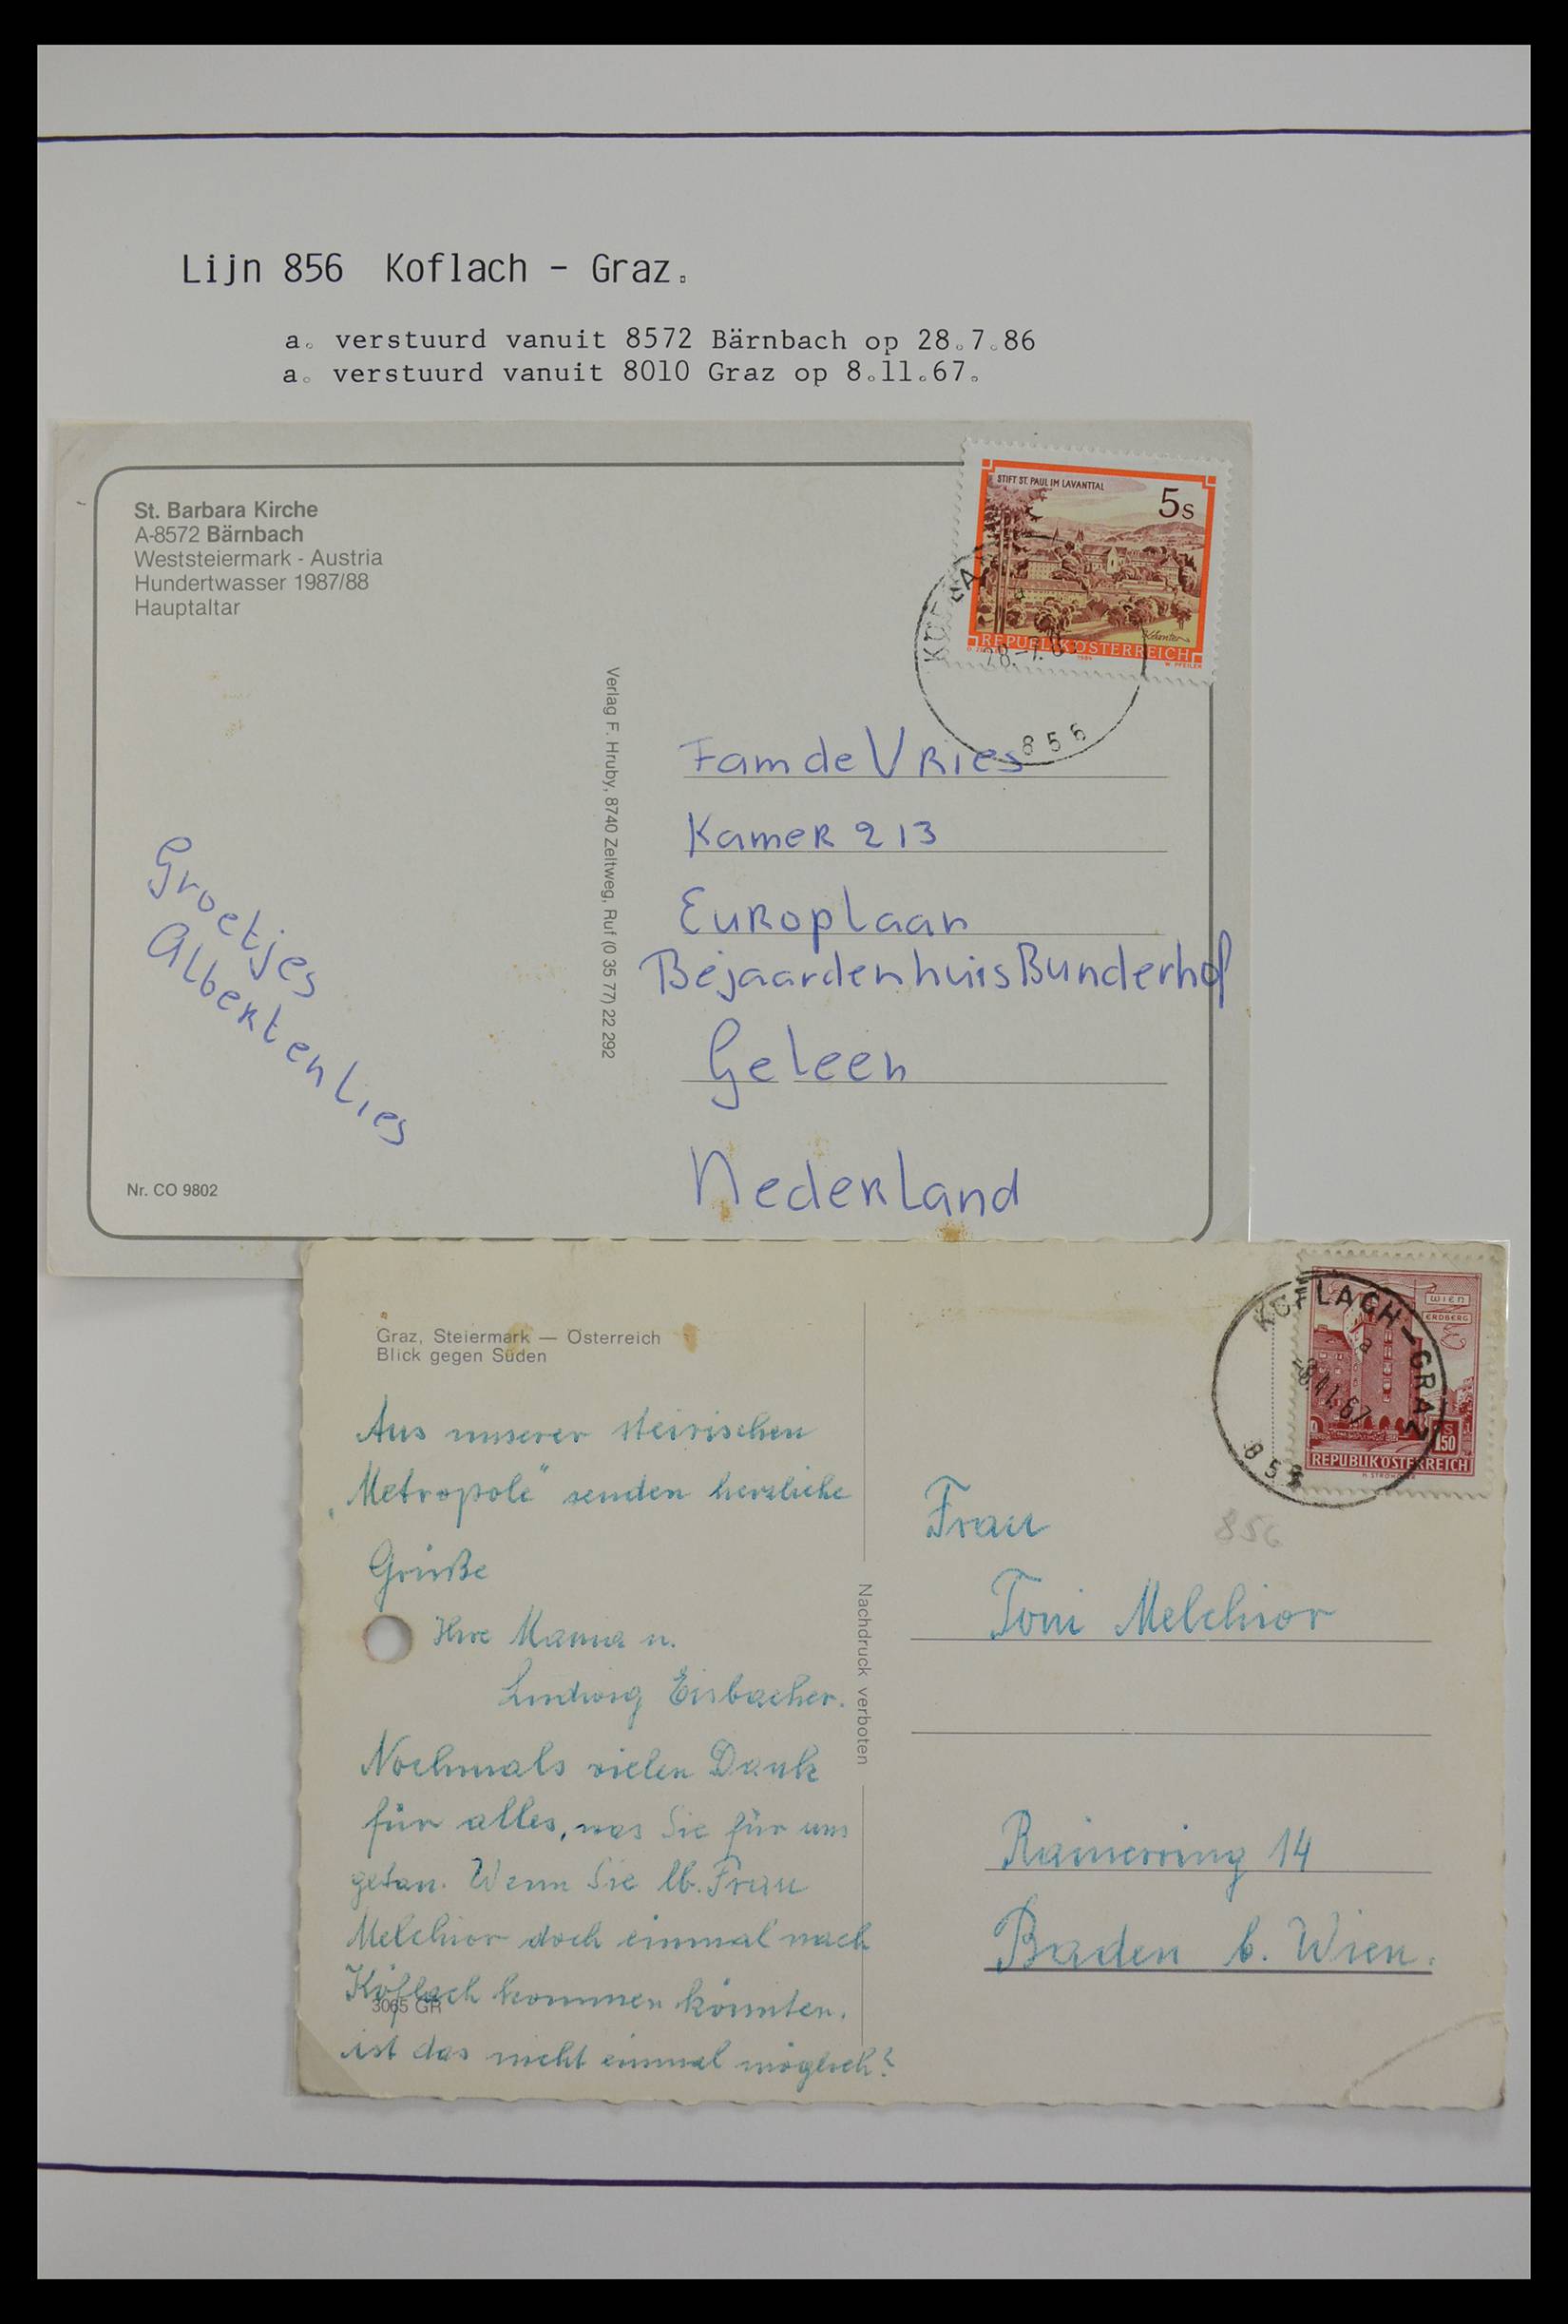 Lijn 856 Koflach - Graz.
a. verstuurd vanuit 8572 Bärnbach op 28.7.86
a. verstuurd vanuit 8010 Graz op 8.11.67.
St. Barbara Kirche
A-8572 Bärnbach
Weststeiermark - Austria
Hundertwasser 1987/88
Hauptaltar
STIFT ST. PAUL IM LAVANTTAL
5s
REPUBLIK ÖSTERREICH
28.-7.8
856
Verlag F. Hruby, 8740 Zeltweg, Ruf (0 35 77) 22 292
Groetjes
Albert en Lies
Nr. CO 9802
Fam de Vries
Kamer 213
Europlaan
Bejaardenhuis Bunderhof
Geleen
Nederland
Graz, Steiermark — Österreich
Blick gegen Süden
Aus unserer steirischen
„Metropole" senden herzliche
Grüße
Ihre Mama u.
Ludwig Eisbacher.
Nochmals vielen Dank
für alles, was Sie für uns
getan. Wenn Sie lb. Frau
Melchior doch einmal nach
Köflach kommen könnten.
ist das nicht einmal möglich?
3065 GR
Nachdruck verboten
KÖFLACH-GRAZ
a
8.11.67
856
WIEN
ERDBERG
S 1.50
REPUBLIK ÖSTERREICH
856
Frau
Toni Melchior
Rainerring 14
Baden b. Wien.